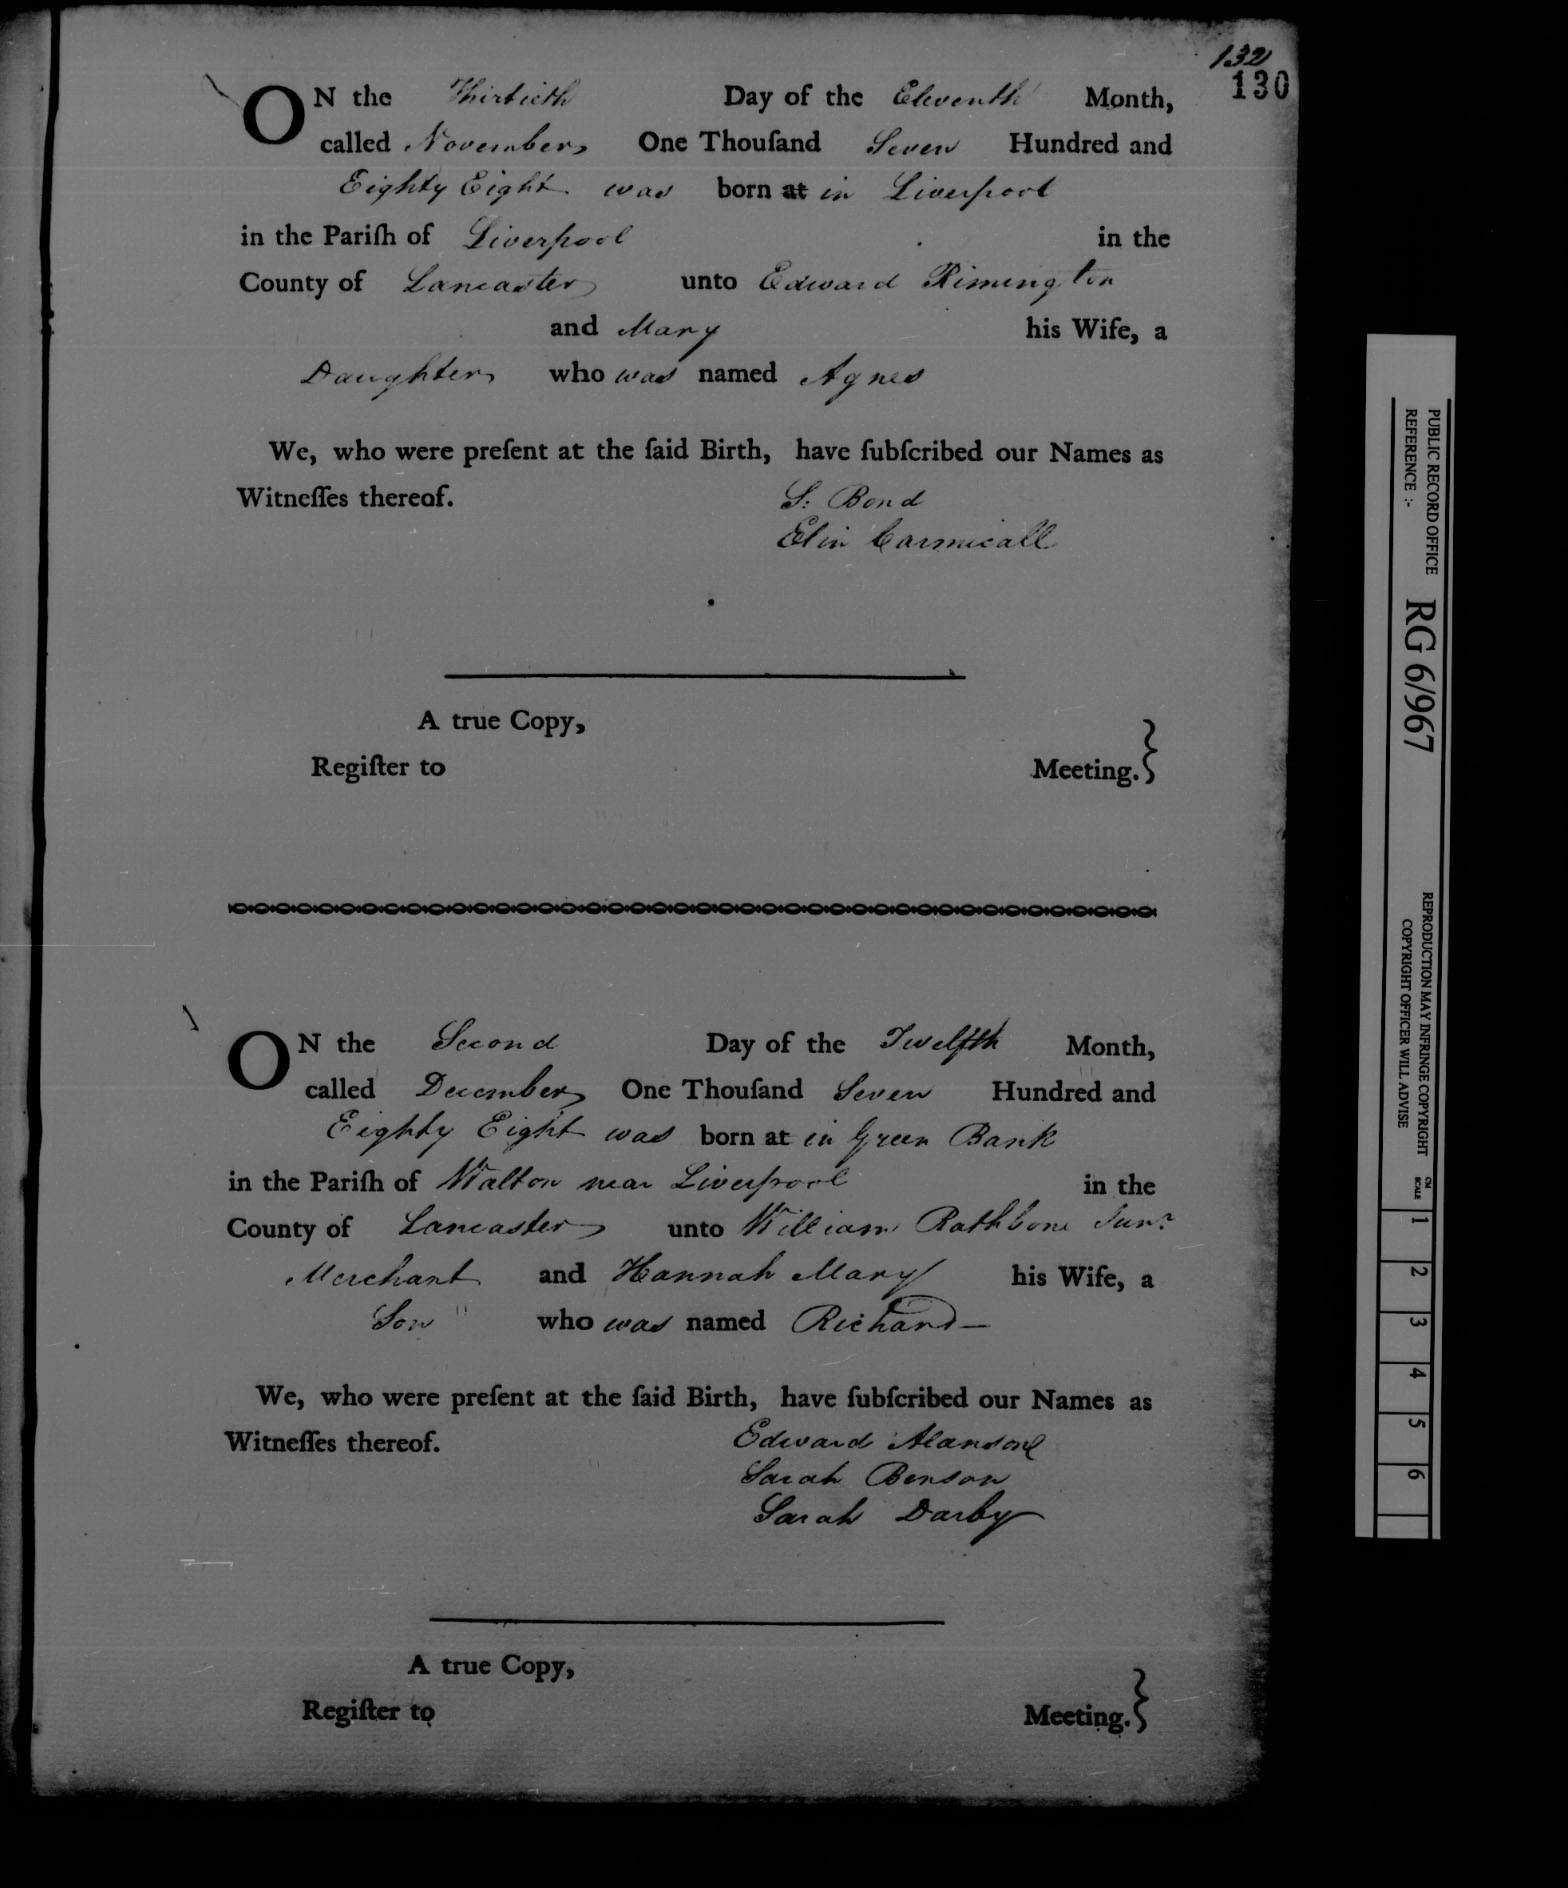 132
130
ON the Thirtieth Day of the Eleventh Month,
called November, One Thouſand Seven Hundred and
Eighty Eight was born at in Liverpool
in the Pariſh of Liverpool in the
County of Lancaster unto Edward Rimington
and Mary his Wife, a
Daughter, who was named Agnes
We, who were preſent at the ſaid Birth, have ſubſcribed our Names as
Witneſſes thereof. S: Bond
Elin Carmicall
A true Copy,
Regiſter to Meeting.}
ON the Second Day of the Twelfth Month,
called December, One Thouſand Seven Hundred and
Eighty Eight was born at in Green Bank
in the Pariſh of Walton near Liverpool in the
County of Lancaster unto William Rathbone Junr
Merchant and Hannah Mary his Wife, a
Son who was named Richard—
We, who were preſent at the ſaid Birth, have ſubſcribed our Names as
Witneſſes thereof. Edward Alanson
Sarah Benson
Sarah Darby
A true Copy,
Regiſter to Meeting.}
PUBLIC RECORD OFFICE
REFERENCE :-
RG 6/967
REPRODUCTION MAY INFRINGE COPYRIGHT
COPYRIGHT OFFICER WILL ADVISE
CM
SCALE
1 2 3 4 5 6